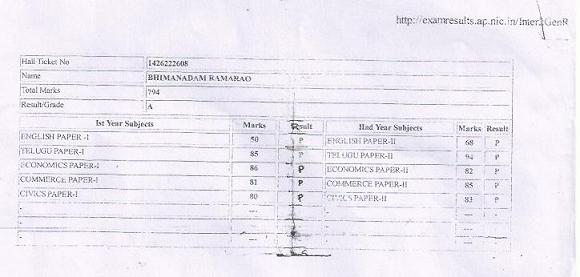 http://examresults.ap.nic.in/Inter2GenR
Hall Ticket No 1426222608
Name BHIMANADAM RAMARAO
Total Marks 794
Result/Grade A
Ist Year Subjects Marks Result IInd Year Subjects Marks Result
ENGLISH PAPER -I 50 P ENGLISH PAPER-II 68 P
TELUGU PAPER-I 85 P TELUGU PAPER-II 94 P
ECONOMICS PAPER-I 86 P ECONOMICS PAPER-II 82 P
COMMERCE PAPER-I 81 P COMMERCE PAPER-II 85 P
CIVICS PAPER-I 80 P CIVICS PAPER-II 83 P
- --- - ---
- --- - ---
- --- - ---